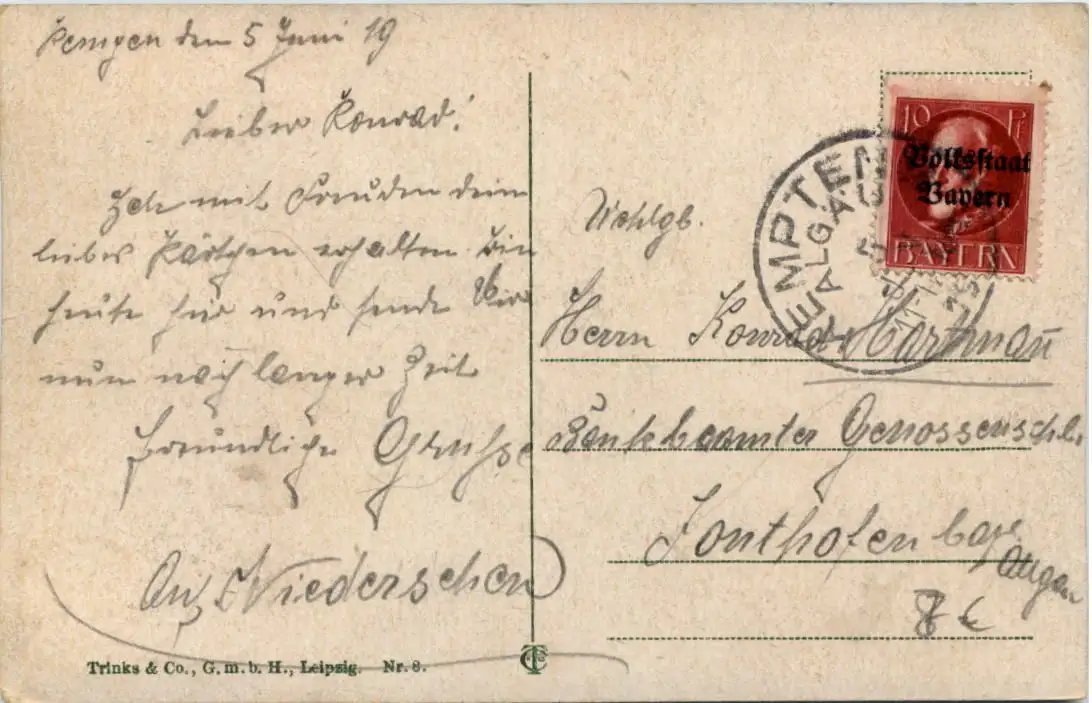 den 5 Juni 19
Lieber Konrad!
Ich mit Freuden dein
liebes Kärtchen erhalten. Bin
heute hir und sende Dir
nun nach langer Zeit
freundliche Grüße
Auf Wiedersehen
Trinks & Co., G. m. b. H., Leipzig. Nr. 8.
10 Pf
Volksstaat
Bayern
BAYERN
KEMPTEN
ALGÄU
Wohlgb.
Herrn Konrad Hartman̄
Bankbeamter Genossenschb.
Sonthofen bayr.
Allgäu
8 €